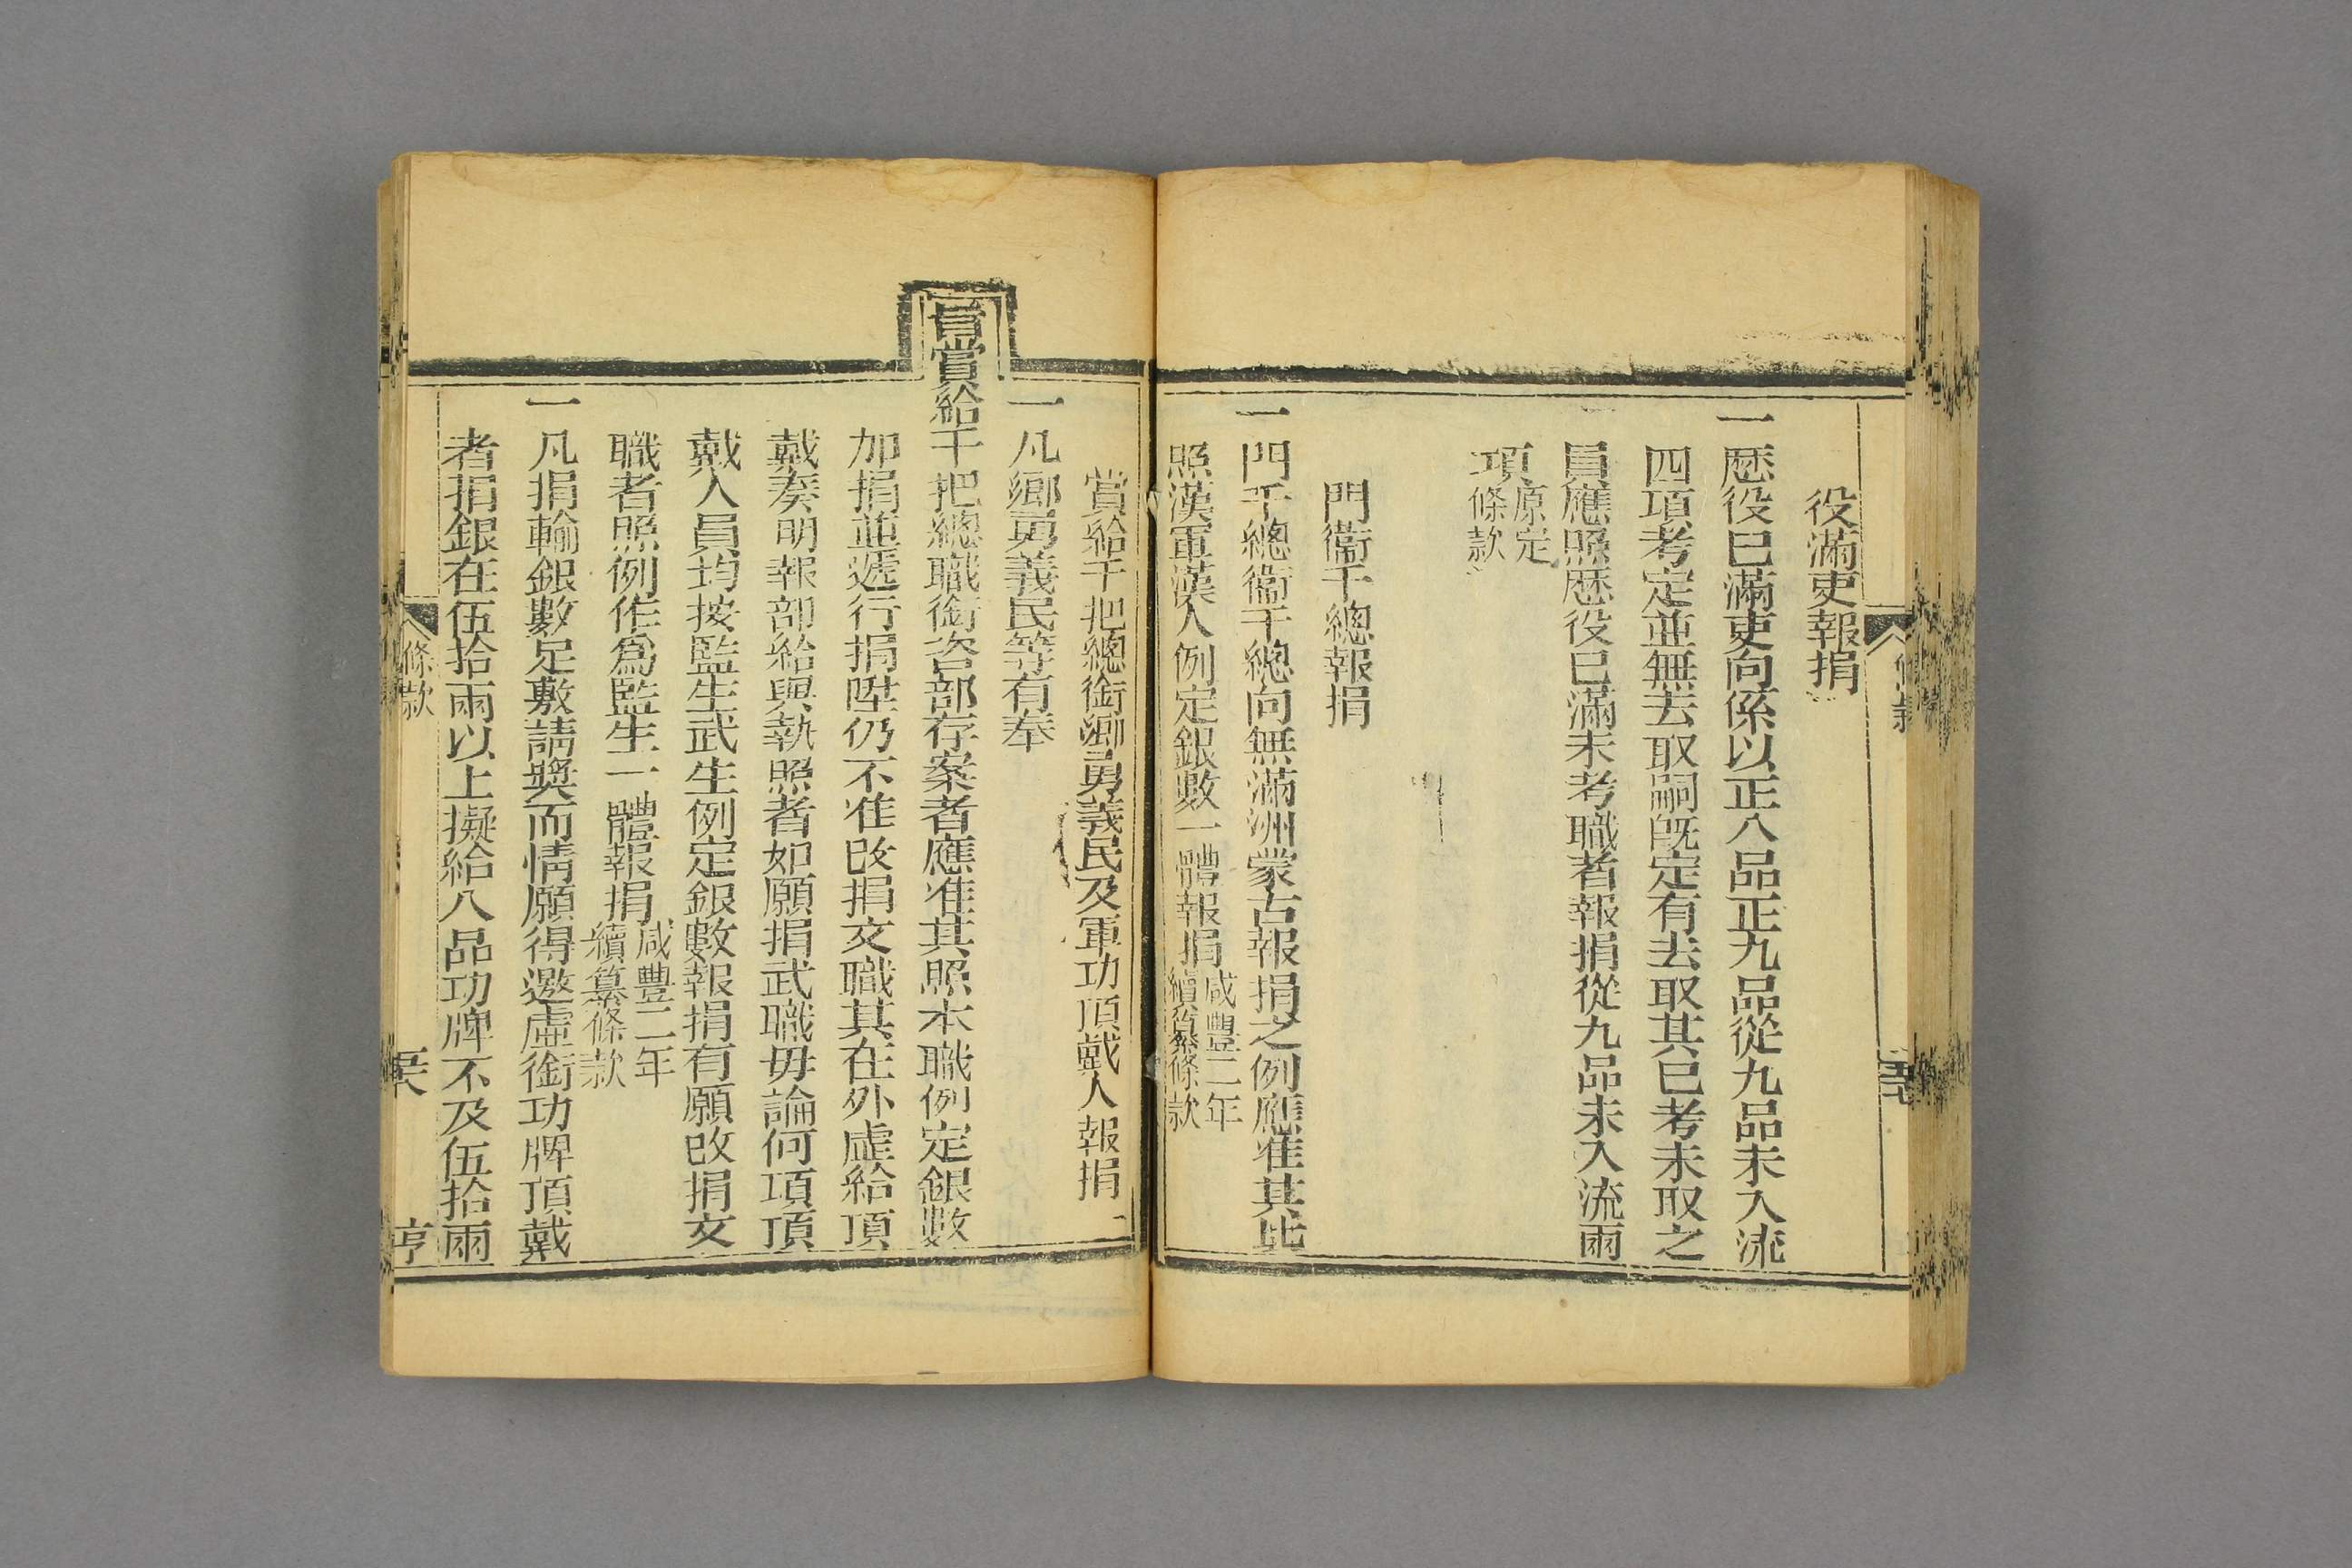 役滿吏報捐
一歷役已滿吏向係以正八品正九品從九品未入流
四項考定並無去取嗣旣定有去取其已考未取之
員應照歷役已滿未考職者報捐從九品未入流兩
項原定條款
門衞千總報捐
一門千總衞千總向無滿洲蒙古報捐之例應准其比
照漢軍漢人例定銀數一體報捐咸豐二年續纂條款
賞給千把總銜鄉勇義民及軍功頂戴人報捐
一凡鄉勇義民等有奉
旨賞給千把總職銜咨部存案者應准其照本職例定銀數
加捐並遞行捐陞仍不准改捐文職其在外虛給頂
戴奏明報部給與執照者如願捐武職毋論何項頂
戴人員均按監生武生例定銀數報捐有願改捐文
職者照例作爲監生一體報捐咸豐二年續纂條款
一凡捐輸銀數足敷請獎而情願得邀虛銜功牌頂戴
者捐銀在伍拾兩以上擬給八品功牌不及伍拾兩
條款
亨